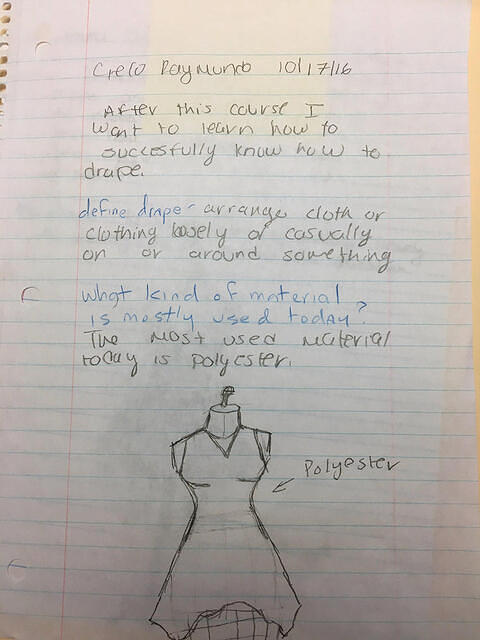 Crelo Raymundo 10/17/16
After this course I
want to learn how to
succesfully know how to
drape.
define drape - arrange cloth or
clothing loosely or casually
on or around something
what kind of material
is mostly used today?
The most used material
today is polyester.
Polyester